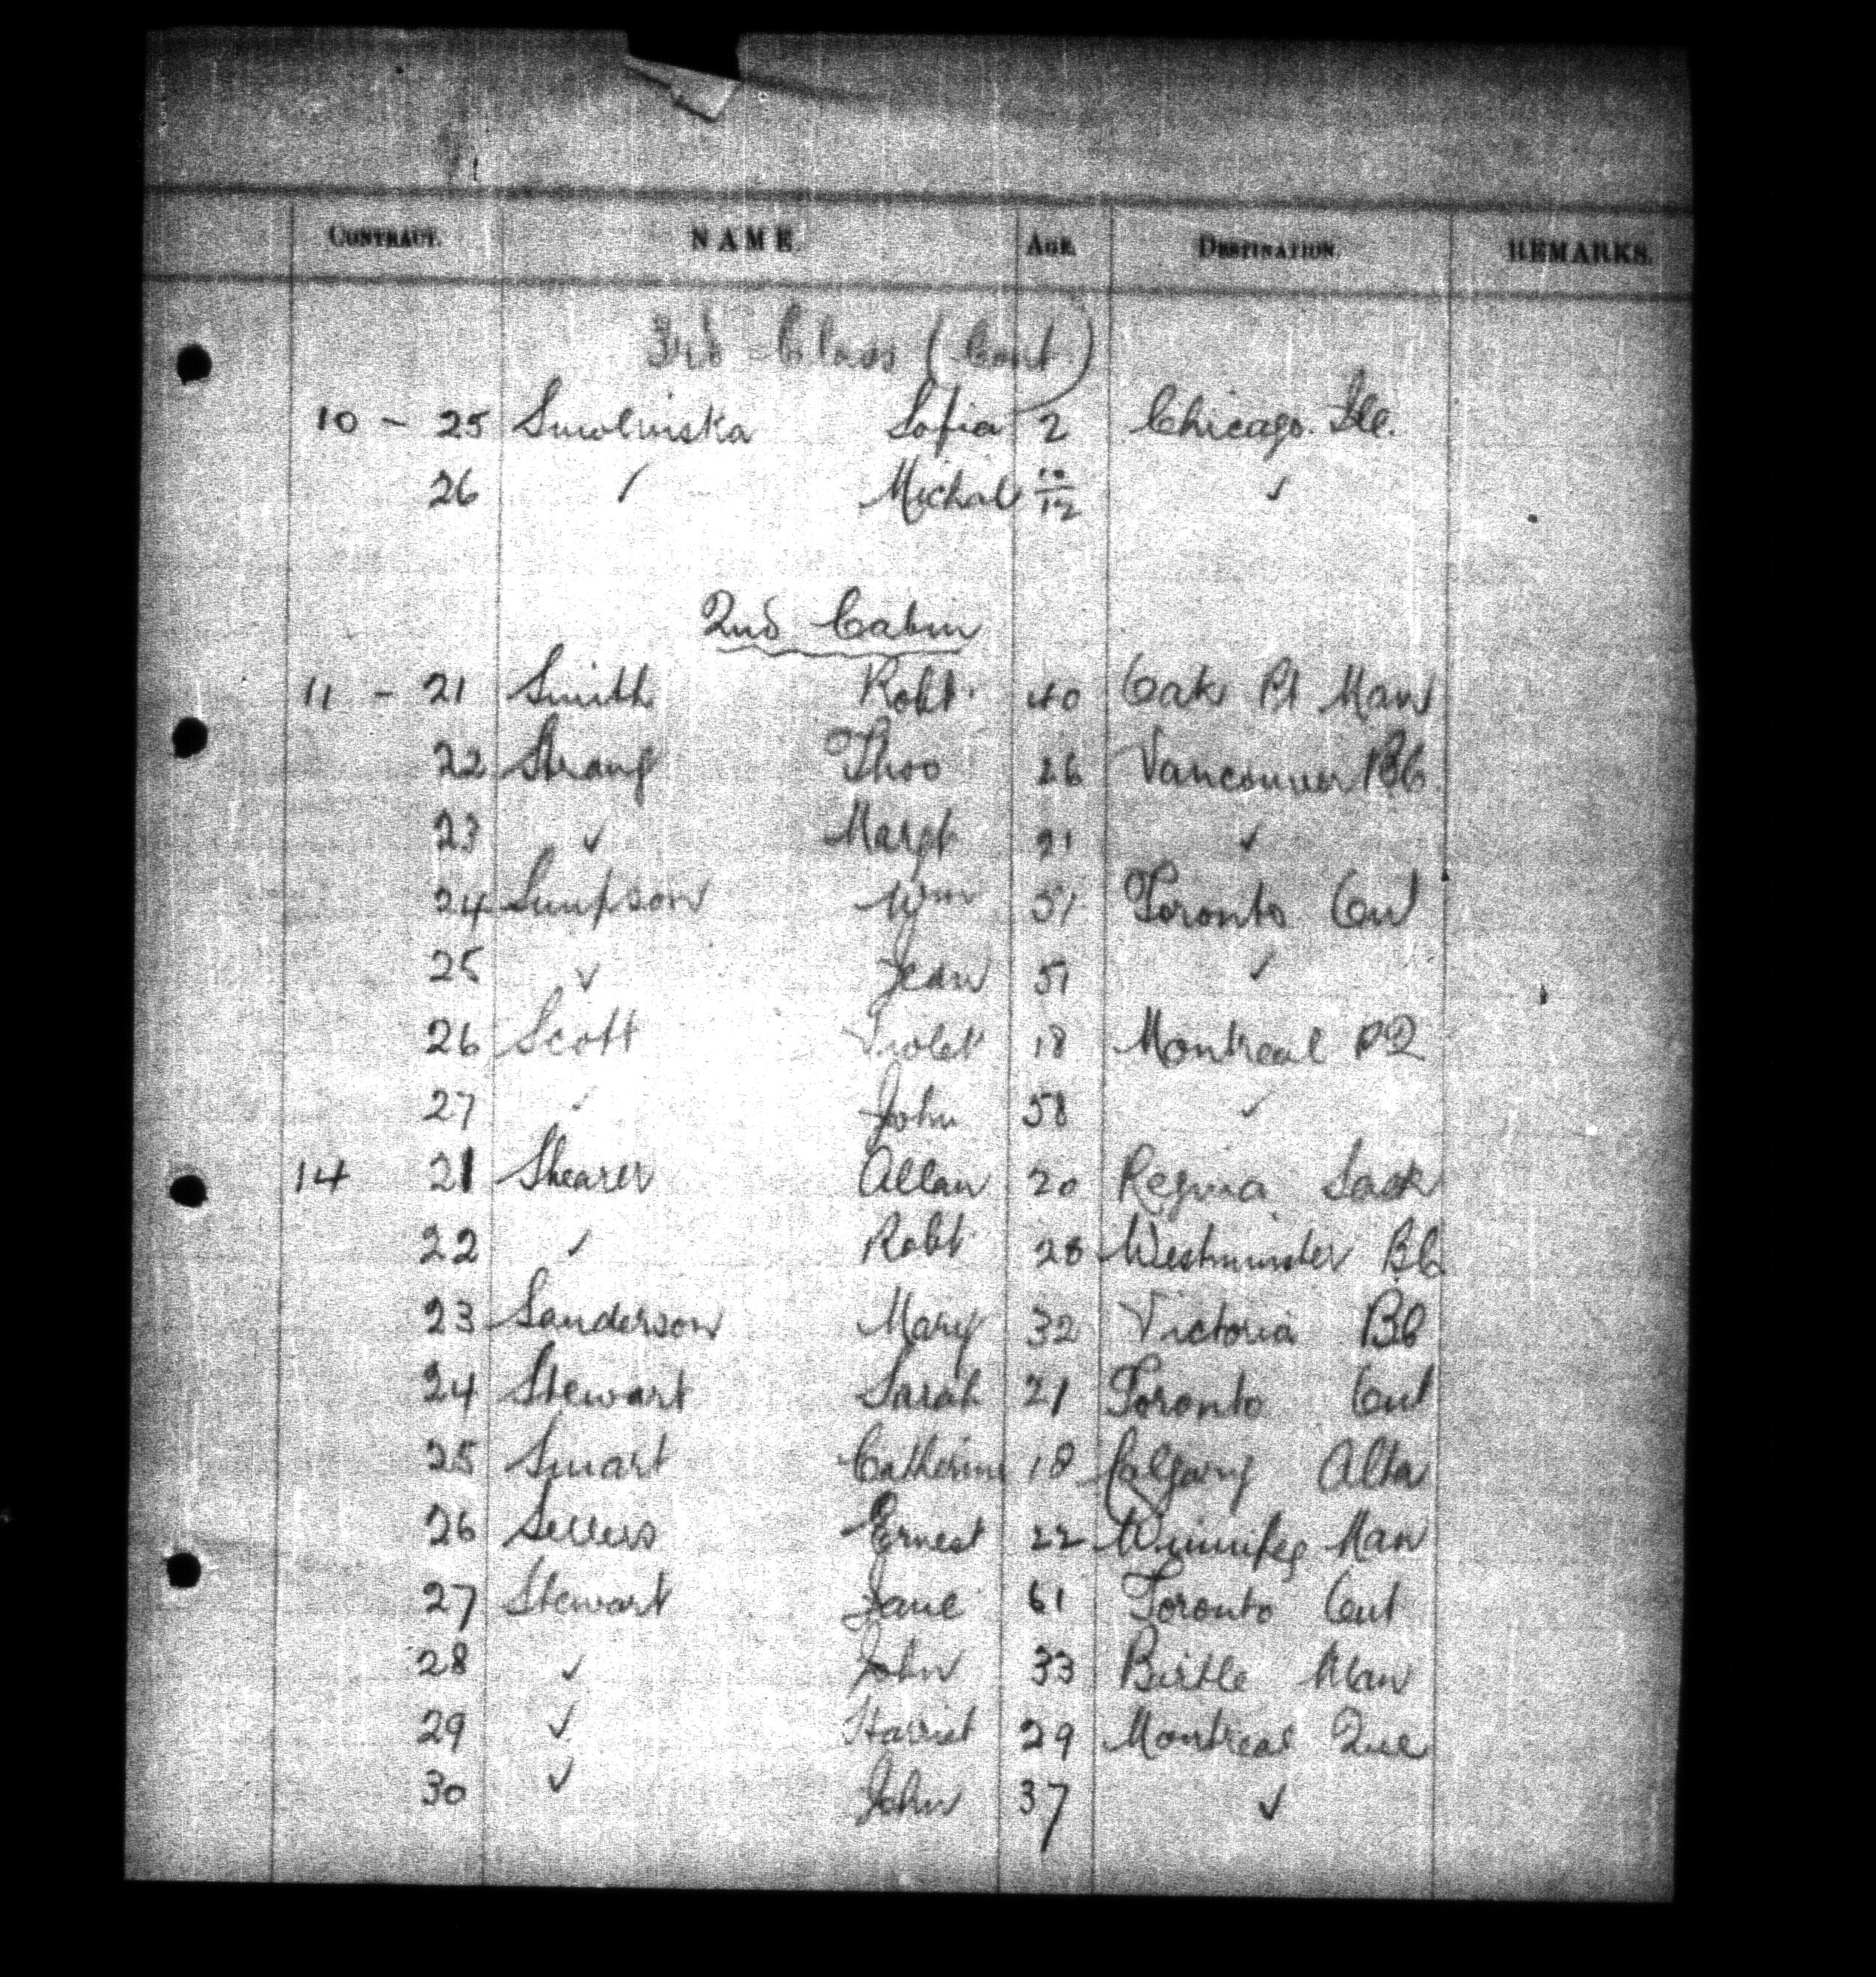 CONTRACT. NAME. AGE. DESTINATION. REMARKS.
3rd Class (Cont)
10 - 25 Smolinska Sofia 2 Chicago. Ill.
26 ✓ Michal 10/12 ✓
2nd Cabin
11 - 21 Smith Robt. 40 Oak Pt Man
22 Strang Thos 26 Vancouver BC
23 ✓ Margt 21 ✓
24 Simpson Wm 51 Toronto Ont
25 ✓ Jean 51 ✓
26 Scott Violet 18 Montreal PQ
27 ✓ John 58 ✓
14 21 Shearer Allan 20 Regina Sask
22 ✓ Robt 28 Westminster BC
23 Sanderson Mary 32 Victoria BC
24 Stewart Sarah 21 Toronto Ont
25 Smart Catherine 18 Calgary Alta
26 Sellers Ernest 22 Winnipeg Man
27 Stewart Jane 61 Toronto Ont
28 ✓ John 33 Birtle Man
29 ✓ Harriet 29 Montreal Que
30 ✓ John 37 ✓